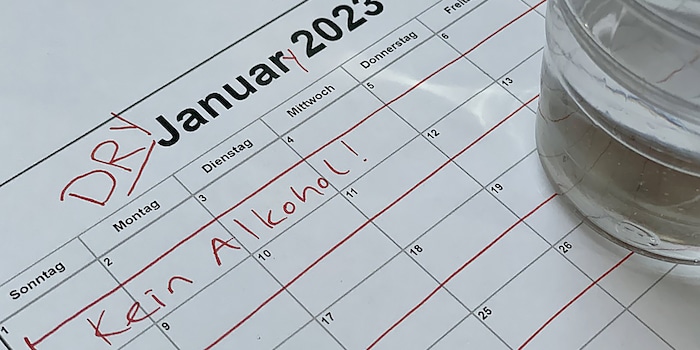 DRY Januar y 2023
Sonntag Montag Dienstag Mittwoch Donnerstag
1 2 3 4 5 6
Kein Alkohol!
9 10 11 12 13
17 18 19
25 26